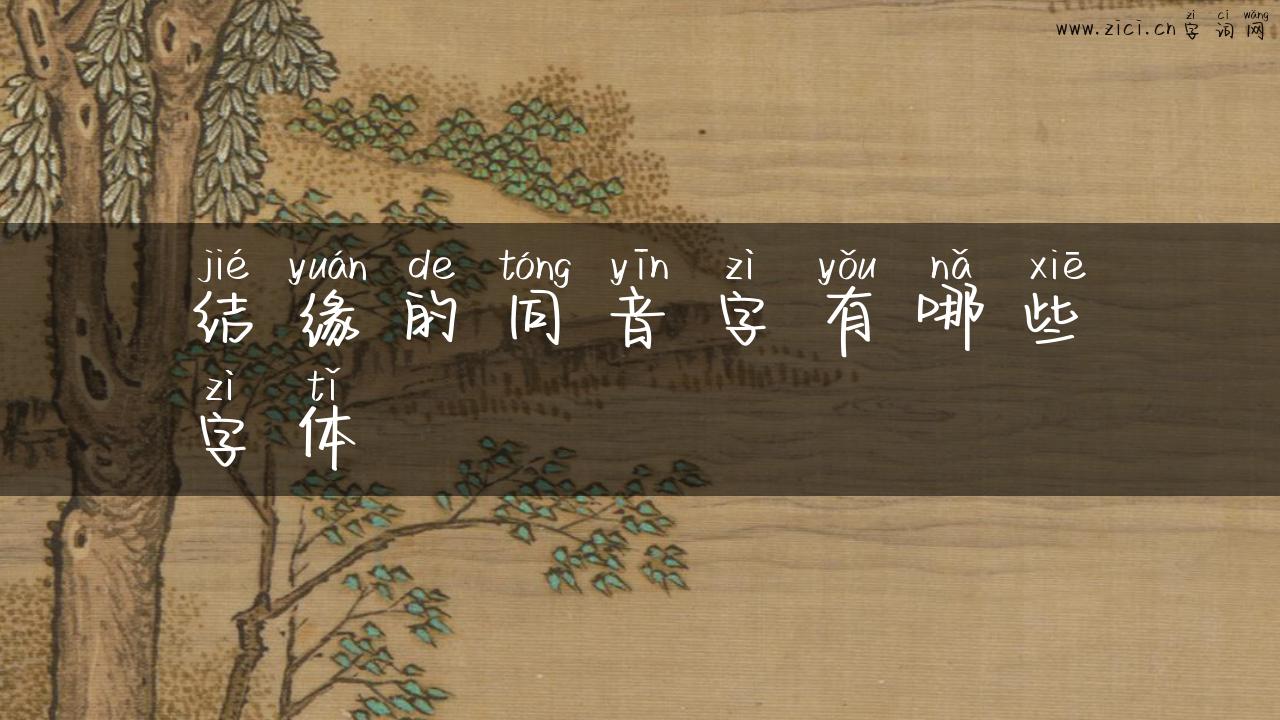 zì cí wǎng
www.zici.cn字词网
jié yuán de tóng yīn zì yǒu nǎ xiē
结缘的同音字有哪些
zì tǐ
字体